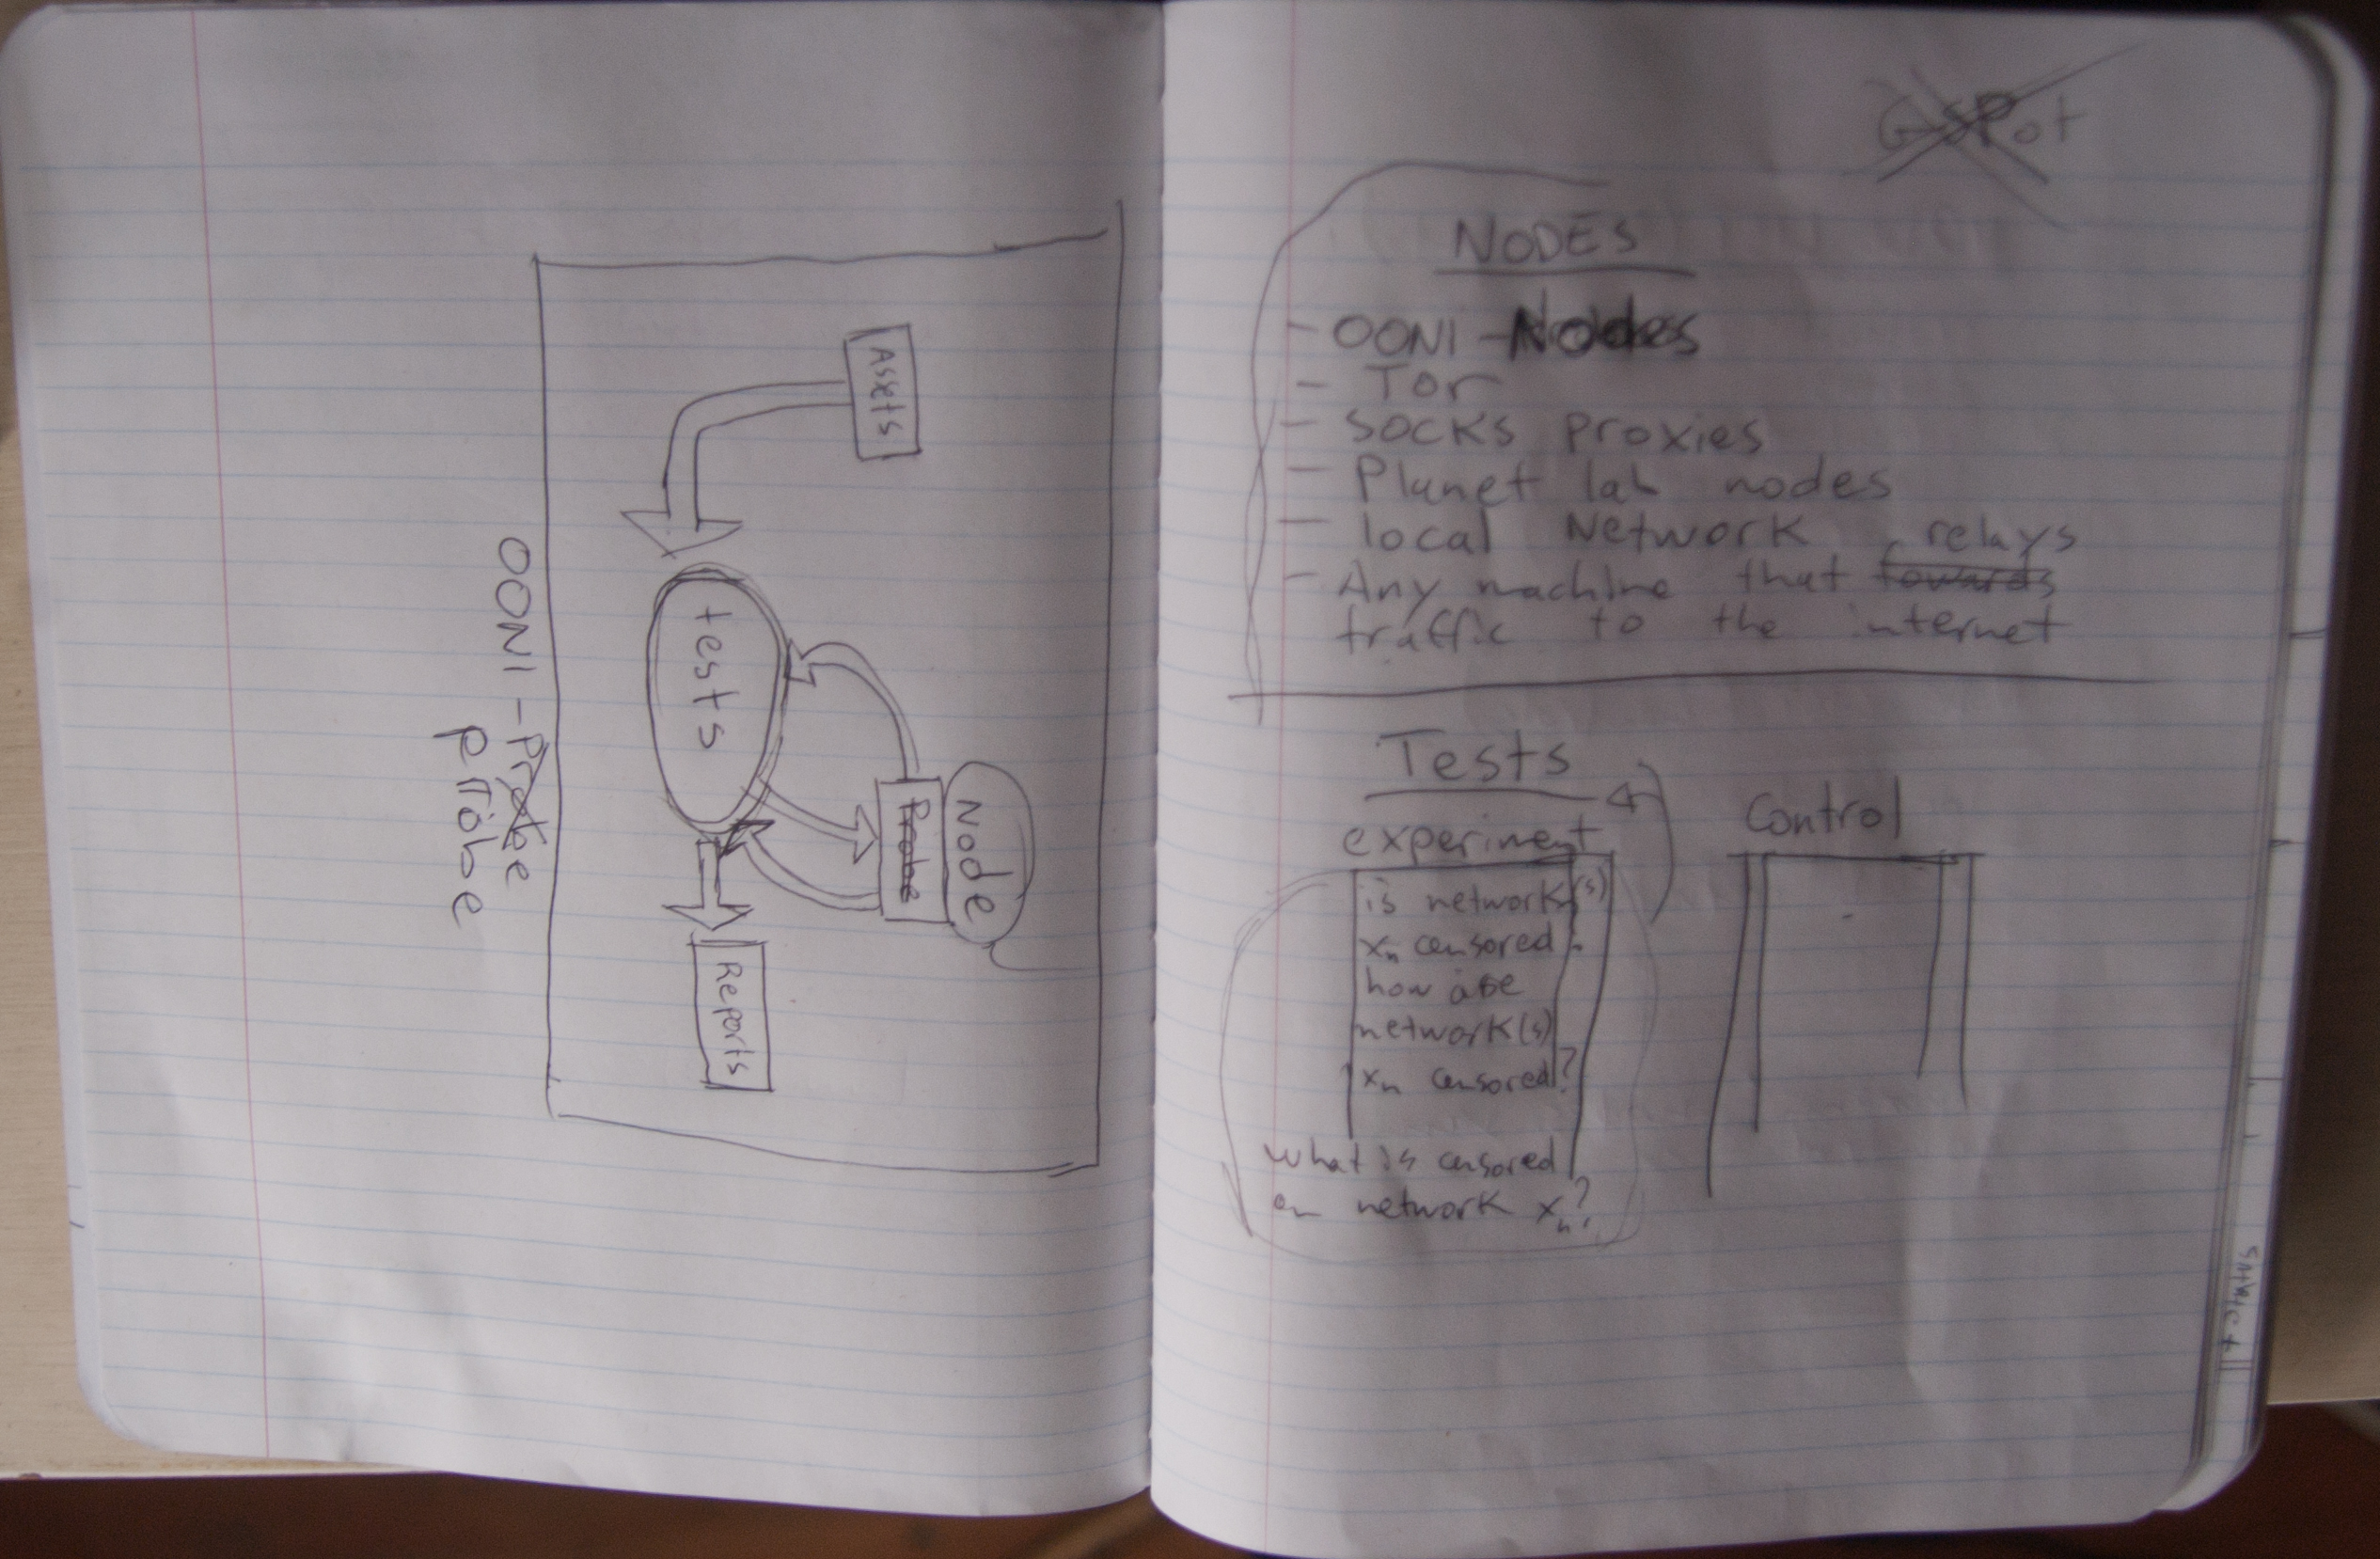 Assets
tests
Node
Probe
Reports
OONI-Probe
Pröbe
G-SPot
NODES
- OONI-Nodes
- Tor
- SOCKS proxies
- Planet lab nodes
- local Network
relays
- Any machine that forwards
traffic to the internet
Tests
Control
experiment
is network(s)
xn censored?
how are
network(s)
xn censored?
what is censored
on network xn?